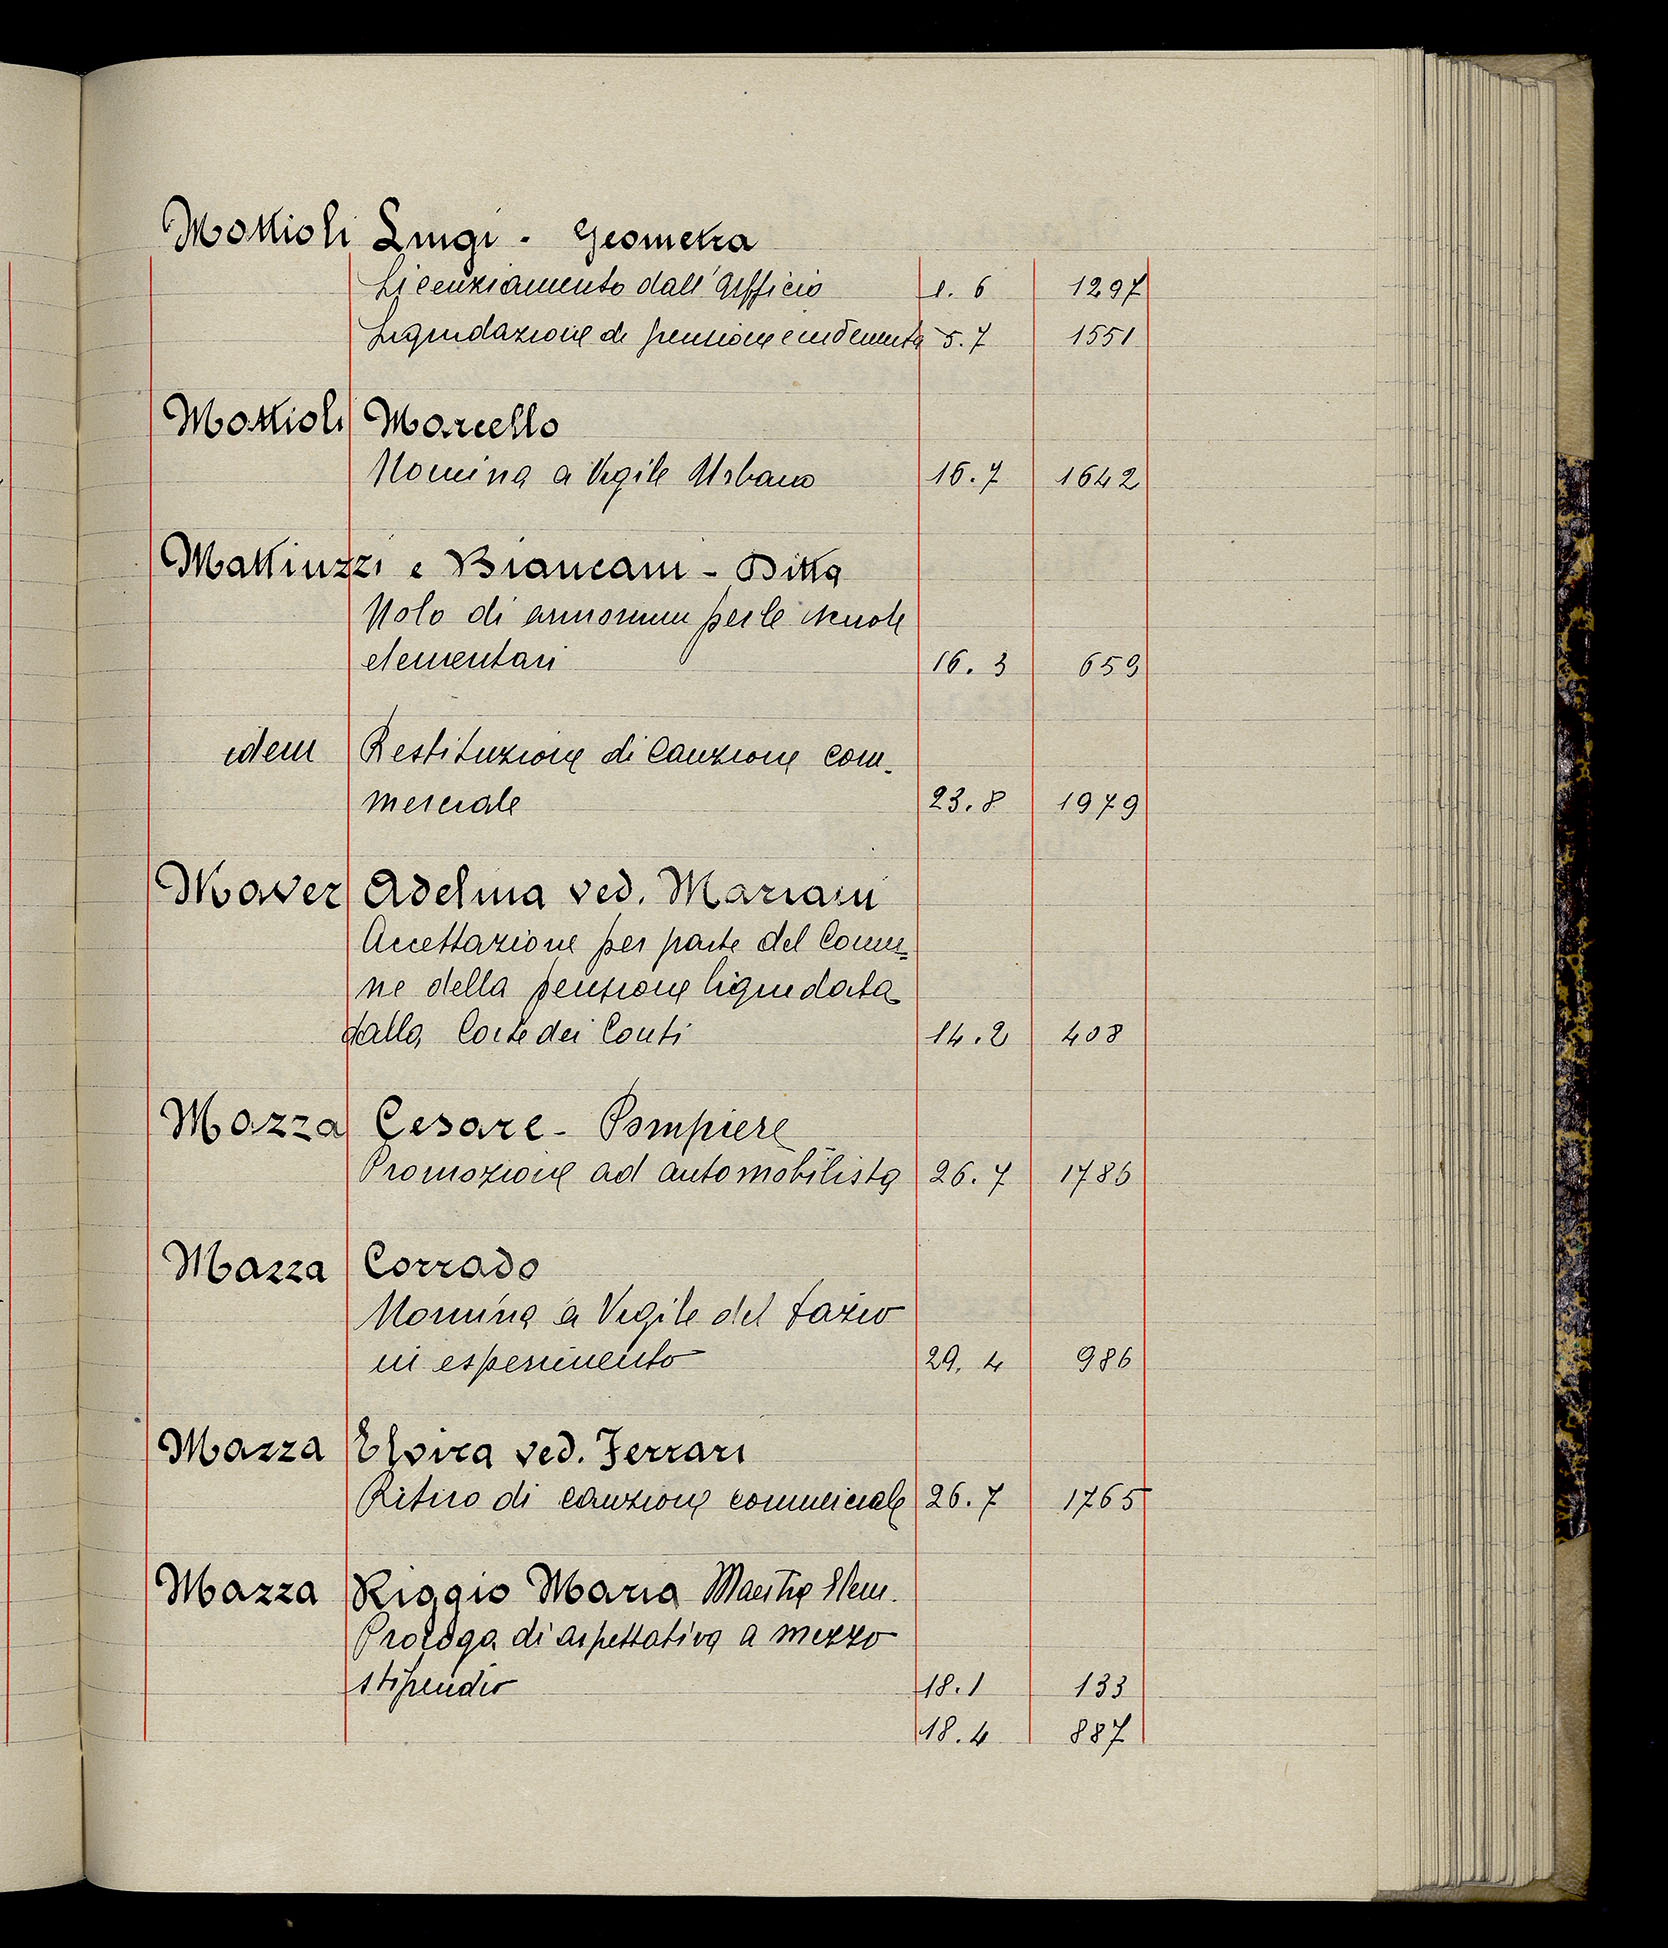 Mattioli Luigi - Geometra
Licenziamento dall'Ufficio 1. 6 1297
Liquidazione di pensione e indennità 5. 7 1551
Mattioli Marcello
Nomina a Vigile Urbano 16. 7 1642
Mattiuzzi e Brancani - Ditta
Nolo di armonium per le scuole
elementari 16. 3 659
idem Restituzione di Cauzione com-
merciale 23. 8 1979
Maver Adelina ved. Mariani
Accettazione per parte del Comu=
ne della pensione liquidata
dalla Corte dei Conti 14. 2 408
Mazza Cesare - Pompiere
Promozione ad automobilista 26. 7 1786
Mazza Corrado
Nomina a Vigile del Dazio
in esperimento 29. 4 986
Mazza Elvira ved. Ferrari
Ritiro di cauzione commerciale 26. 7 1765
Mazza Riggio Maria Maestra Elem.
Proroga di aspettativa a mezzo
stipendio 18. 1 133
18. 4 887